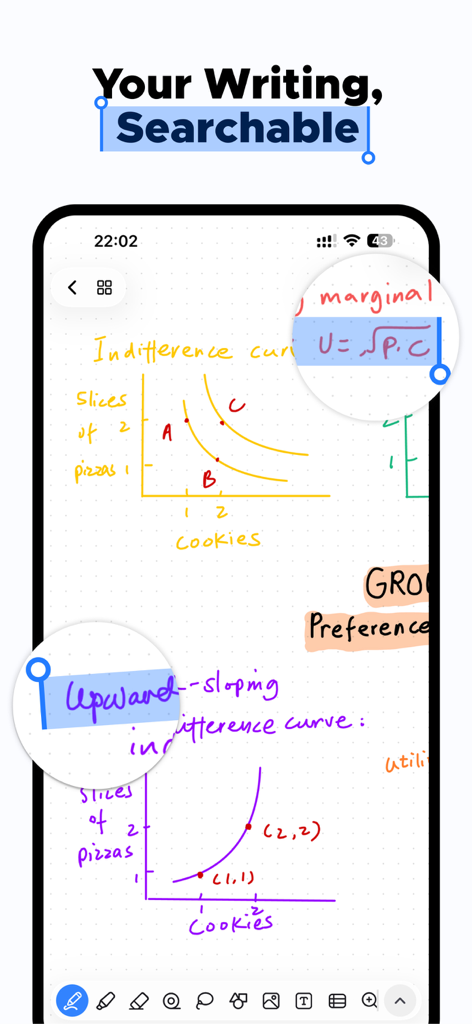 Your Writing,
Searchable
22:02
43
marginal
U = √P.C
Indifference cur
Slices
of
pizzas
2
1
A
B
C
1 2
Cookies
2
1
GRO
Preference
Upward--sloping
indifference curve:
utili
Slices
of
pizzas
2
1
(2,2)
(1,1)
1 2
Cookies
T